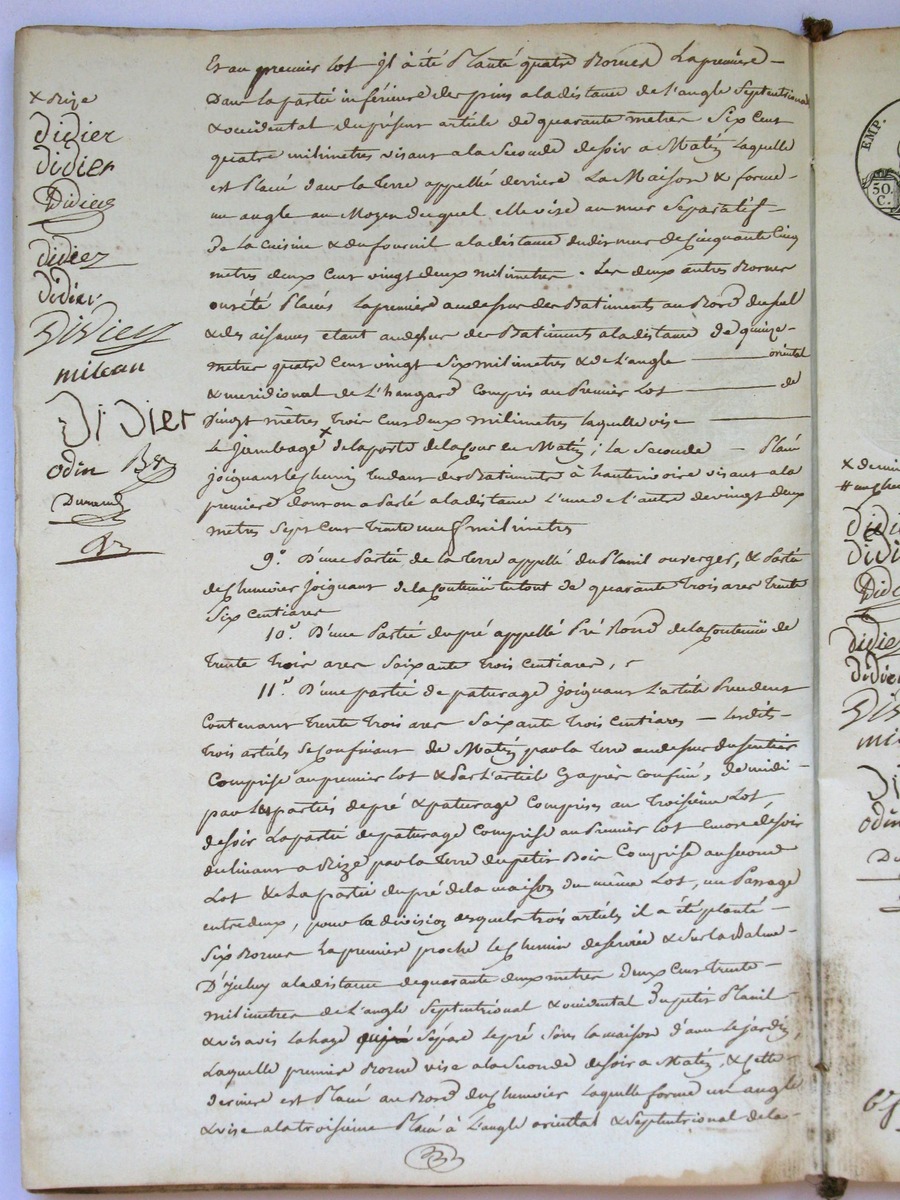 x Bize
didier
didier
Didier
didiez
didier
Didier
mileau
Didier
odin
Durand
Et au premier lot il a été Planté quatre Bornes La première —
Dans la partie inférieure des pins a la distance de l'angle Septentrional
& occidental du présent article de quarante metres Six Cent
quatre milimetres visant a la Seconde de soir a Matin Laquelle
est Placée dans la terre appellée derriere La Maison & forme —
un angle au Moyen duquel elle vise au mur Separatif —
De la cuisine & du fournil a la distance dudit mur de Cinquante Cinq
metres deux Cent vingt deux milimetres . Les deux autres Bornes
ont été Placées La premiere au dessus des Batiments au Bord du
& des aisances etant au dessus des Batiments a la distance de quinze —
metres quatre Cent vingt Six milimetres & de L'angle — oriental
& meridional de L'hangard Compris au Premier Lot — de
vingt mètres trois Cent deux milimetres laquelle vise —
Le Jambage x de la porte de la Cour en Matin ; la Seconde — Placée
joignant le chemin tendant des Batiments à hauterivoire visant a la
premiere dont on a Parlé a la distance L'une de L'autre de vingt deux
metres Sept Cent trente neuf milimetres
9.° D'une Partie de la terre appellé du Planil ou verger, & Partie
de Chenevier Joignant de la Contenue en tout de quarante trois ares trente
Six Centiares
10.° D'une Partie du pré appellé Pré Rond de la Contenue de
trente trois ares Soixante trois Centiares,
11.° D'une partie de paturage joignant L'article Precedent
Contenant trente trois ares Soixante trois Centiares — Lesdits —
trois articles Se Confinant de Matin par la terre au dessus du Sentier
Comprise au premier lot & Par L'article cy après Confiné, de midi —
par les parties de pré & paturage Comprises au Troisième Lot,
de soir La partie de paturage Comprise au Premier lot encore de soir
declinant a Bize par la terre du petit Bois Comprise au second
Lot & La partie du pré de la maison du même Lot, un Passage
entre deux, pour la division desquels trois articles il a été planté —
Six Bornes La premiere proche le Chemin de serrée & Sur la Balme —
a la distance de quarante deux metres deux Cent trente —
milimetres de L'angle Septentrional & occidental du petit Planil
& vis avis La haye qui Sépare le pré Sous la maison d'avec le jardin,
Laquelle premiere Borne vise a la Seconde de soir a Matin, & Cette —
derniere est Placée au Bord du Chenevier Laquelle forme un angle
& vise a la troisieme Placée à L'angle oriental & Septentrional de la —
EMP.
50
C.
didier